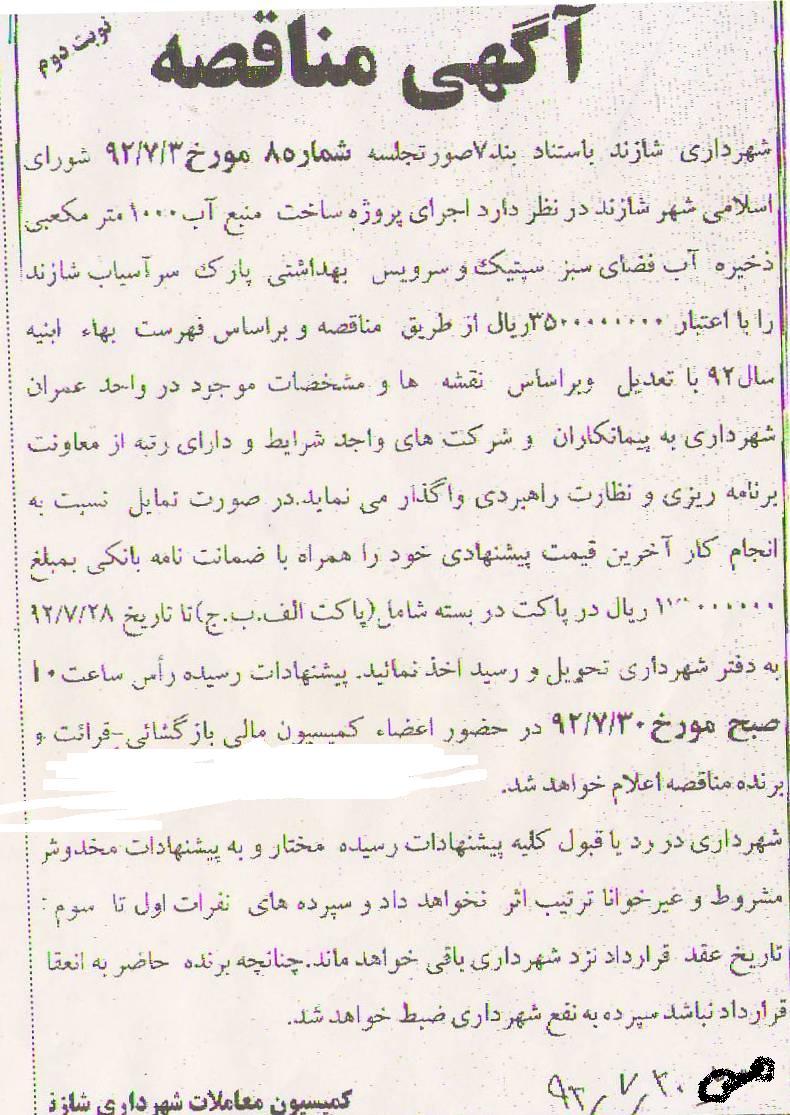 آگهی مناقصه
نوبت دوم
شهرداری شازند باستناد بند۷صورتجلسه شماره۸ مورخ۹۲/۷/۳ شورای
اسلامی شهر شازند در نظر دارد اجرای پروژه ساخت منبع آب۱۰۰۰ متر مکعبی
ذخیره آب فضای سبز سپتیک و سرویس بهداشتی پارک سرآسیاب شازند
را با اعتبار ۳۵۰۰۰۰۰۰۰۰ریال از طریق مناقصه و براساس فهرست بهاء ابنیه
سال۹۲ با تعدیل وبراساس نقشه ها و مشخصات موجود در واحد عمران
شهرداری به پیمانکاران و شرکت های واجد شرایط و دارای رتبه از معاونت
برنامه ریزی و نظارت راهبردی واگذار می نماید.در صورت تمایل نسبت به
انجام کار آخرین قیمت پیشنهادی خود را همراه با ضمانت نامه بانکی بمبلغ
ریال در پاکت در بسته شامل(پاکت الف.ب.ج)تا تاریخ ۹۲/۷/۲۸
به دفتر شهرداری تحویل و رسید اخذ نمائید. پیشنهادات رسیده رأس ساعت۱۰
صبح مورخ۹۲/۷/۳۰ در حضور اعضاء کمیسیون مالی بازگشائی-قرائت و
برنده مناقصه اعلام خواهد شد.
شهرداری در رد یا قبول کلیه پیشنهادات رسیده مختار و به پیشنهادات مخدوش
مشروط و غیرخوانا ترتیب اثر نخواهد داد و سپرده های نفرات اول تا سوم
تاریخ عقد قرارداد نزد شهرداری باقی خواهد ماند.چنانچه برنده حاضر به انعقا
قرارداد نباشد سپرده به نفع شهرداری ضبط خواهد شد.
کمیسیون معاملات شهرداری شازند